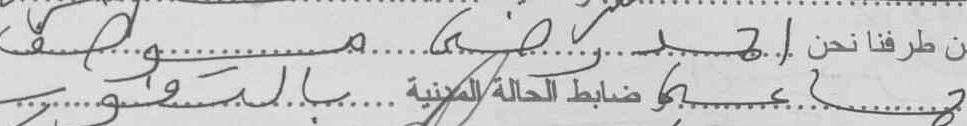 ن طرفنا نحن احمد رضى موظف
جماعي ضابط الحالة المدنية بالتفويض